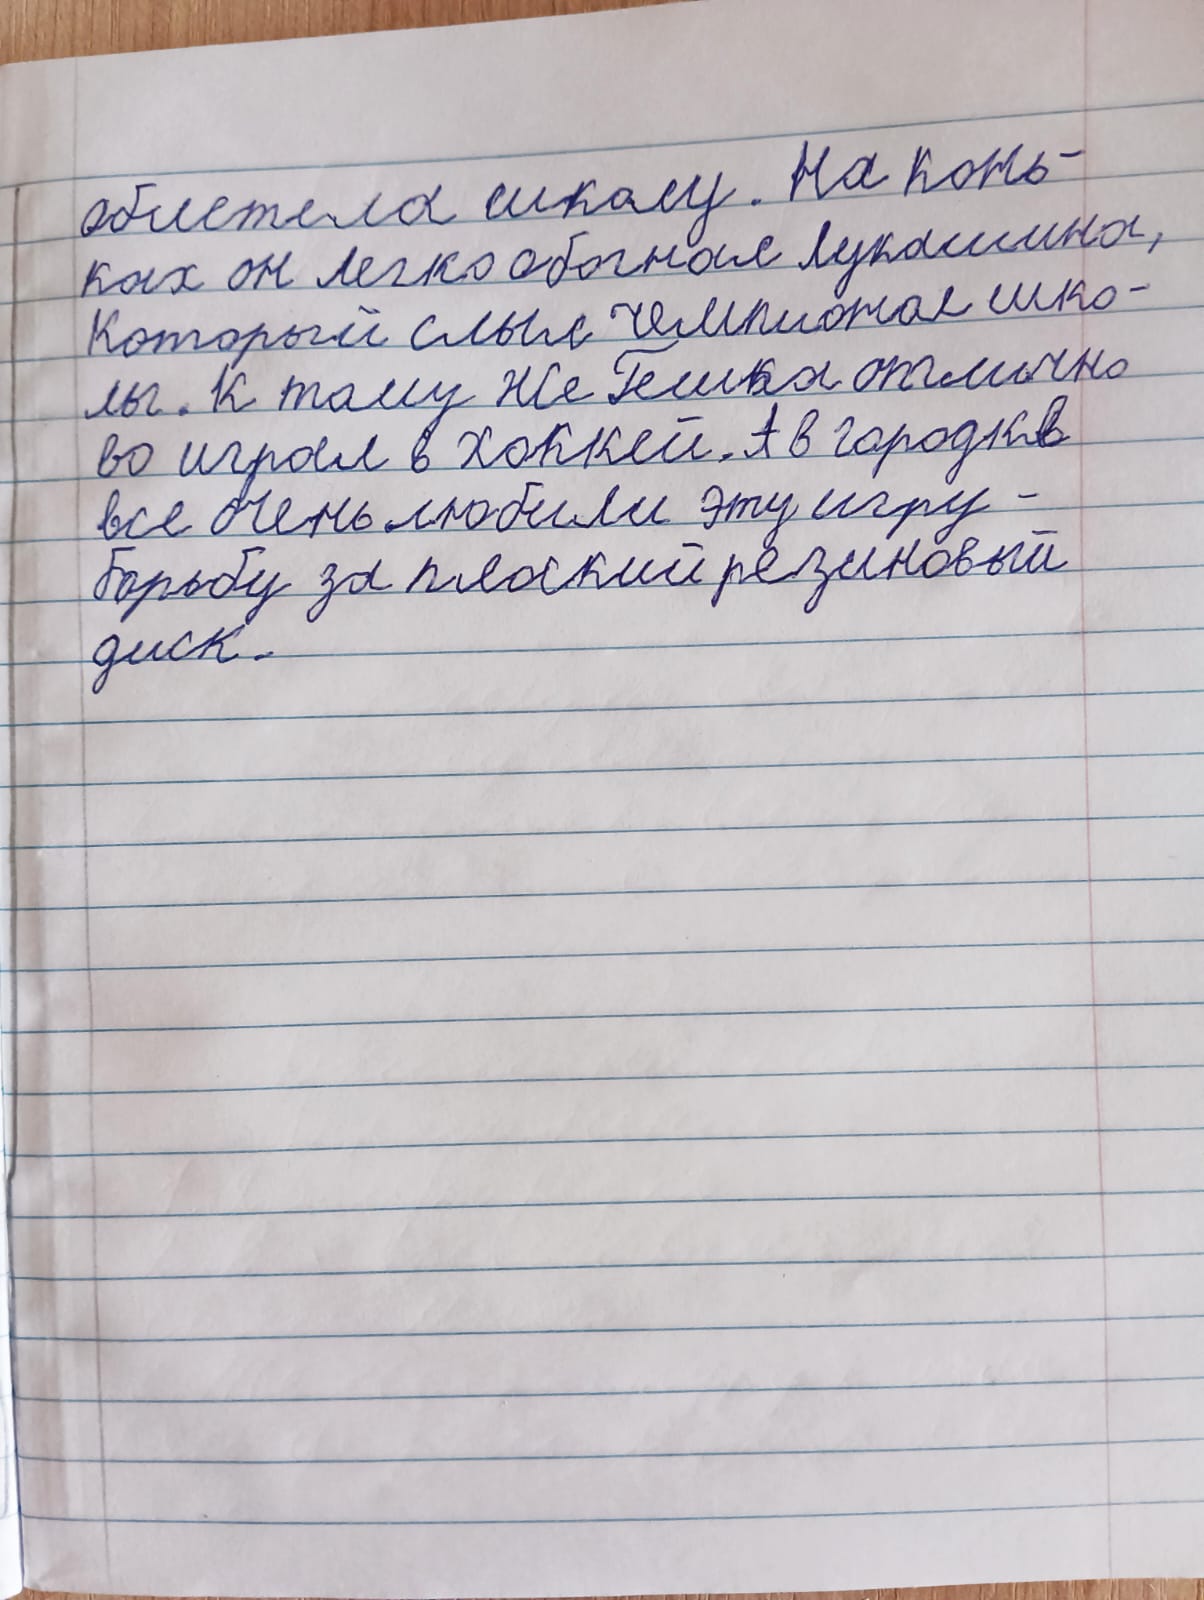 облетела школу. На конь-
ках он легко обогнал Лукашина,
который слыл чемпионом шко-
лы. К тому же Гешка отлично
во играл в хоккей. А в городке
все очень любили эту игру -
борьбу за плоский резиновый
диск.